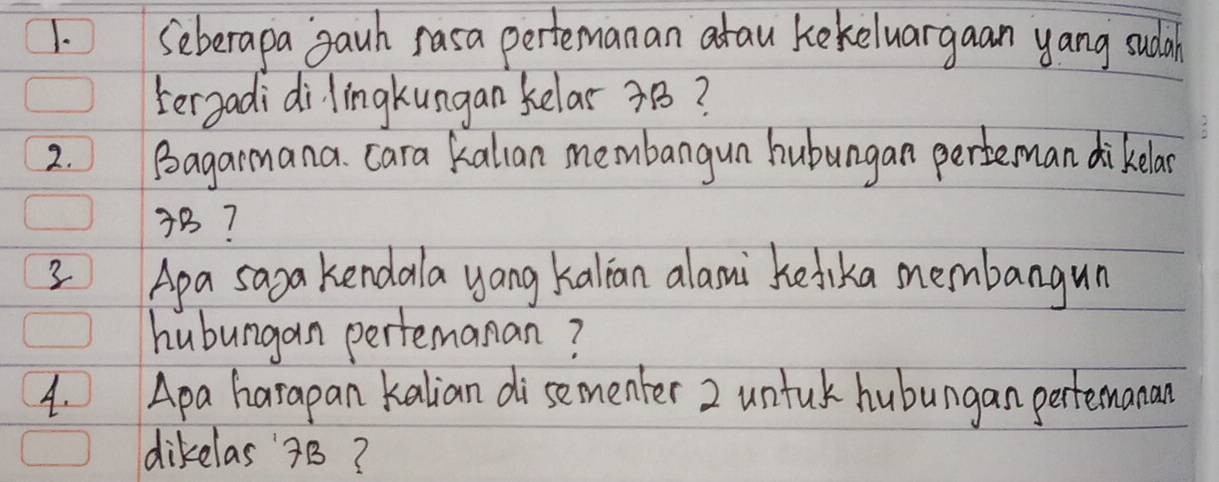 1. Seberapa jauh rasa pertemanan atau kekeluargaan yang sudah
terjadi di lingkungan kelas 7B ?
2. Bagaimana. cara kalian membangun hubungan perteman di kelas
7B ?
3 Apa saja kendala yang kalian alami ketika membangun
hubungan pertemanan ?
4. Apa harapan kalian di sementer 2 untuk hubungan pertemanan
dikelas 7B ?